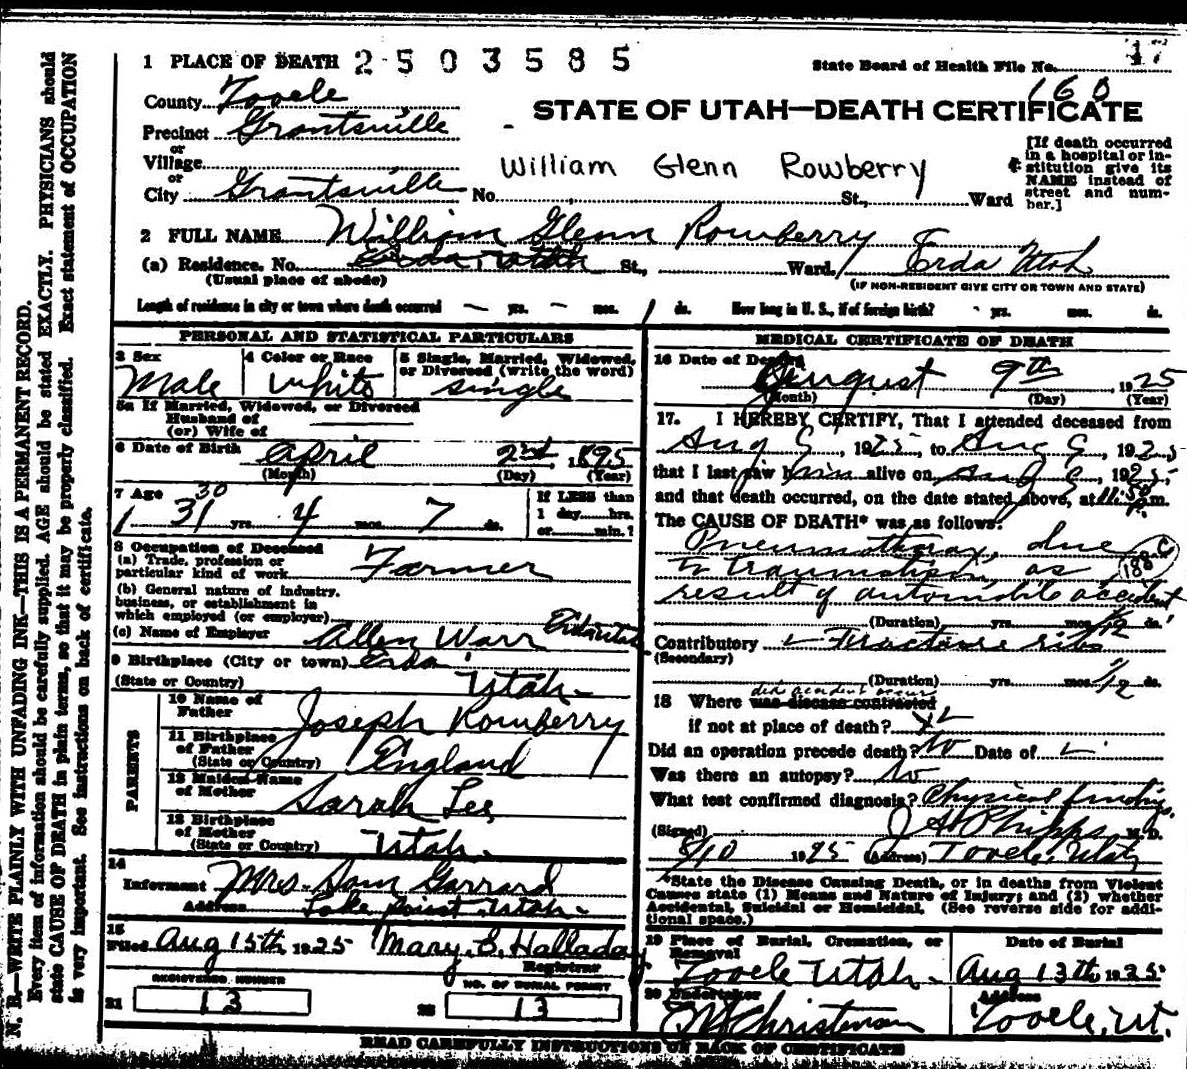 1 PLACE OF DEATH 2503585
State Board of Health File No. 17
160
County Tooele
STATE OF UTAH—DEATH CERTIFICATE
Precinct Grantsville
or
Village
or
City Grantsville No. St., Ward
William Glenn Rowberry
[If death occurred
in a hospital or in-
stitution give its
NAME instead of
street and num-
ber.]
2 FULL NAME William Glenn Rowberry
(a) Residence. No. Erda, Utah St., Ward. Erda Utah
(Usual place of abode) (IF NON-RESIDENT GIVE CITY OR TOWN AND STATE)
Length of residence in city or town where death occurred — yrs. — mos. 1 ds. How long in U. S., if of foreign birth? yrs. mos. ds.
PERSONAL AND STATISTICAL PARTICULARS
3 Sex 4 Color or Race 5 Single, Married, Widowed,
or Divorced (write the word)
Male White single
5a If Married, Widowed, or Divorced
Husband of
(or) Wife of
6 Date of Birth April 2nd, 1895
(Month) (Day) (Year)
7 Age 30
31 yrs. 4 mos. 7 ds.
If LESS than
1 day....hrs.
or....min.?
8 Occupation of Deceased
(a) Trade, profession or
particular kind of work Farmer
(b) General nature of industry.
business, or establishment in
which employed (or employer)
(c) Name of Employer Allen Warr Erda Utah
9 Birthplace (City or town) Erda
(State or Country) Utah
PARENTS
10 Name of
Father Joseph Rowberry
11 Birthplace
of Father
(State or Country) England
12 Maiden Name
of Mother Sarah Lee
13 Birthplace
of Mother
(State or Country) Utah
14
Informant Mrs. Sam Garrard
Address Lake point Utah
15
Filed Aug 15th, 1925 Mary E. Halladay
Registrar
REGISTERED NUMBER NO. OF BURIAL PERMIT
21 13 22 13
MEDICAL CERTIFICATE OF DEATH
16 Date of Death
August 9th, 1925
(Month) (Day) (Year)
17. I HEREBY CERTIFY, That I attended deceased from
Aug 9, 1925, to Aug 9, 1925
that I last saw him alive on Aug 9, 1925
and that death occurred, on the date stated above, at 11:50 P.m.
The CAUSE OF DEATH* was as follows:
Pneumothorax, due
to traumatism, as 188 c
result of automobile accident
(Duration) yrs. mos. 1/12 ds.
Contributory Fracture ribs
(Secondary)
(Duration) yrs. mos. 1/12 ds.
did accident occur
18 Where was disease contracted
if not at place of death?
Did an operation precede death? No Date of
Was there an autopsy? No
What test confirmed diagnosis? Physical findings
(Signed) J A Phipps M. D.
8/10 1925 (Address) Tooele, Utah
*State the Disease Causing Death, or in deaths from Violent
Causes state (1) Means and Nature of Injury; and (2) whether
Accidental, Suicidal or Homicidal. (See reverse side for addi-
tional space.)
19 Place of Burial, Cremation, or
Removal Date of Burial
Tooele Utah Aug 13th, 1925
20 Undertaker Address
Christman Tooele, Ut.
READ CAREFULLY INSTRUCTIONS ON BACK OF CERTIFICATE
N. B.—WRITE PLAINLY WITH UNFADING INK—THIS IS A PERMANENT RECORD.
Every item of information should be carefully supplied. AGE should be stated EXACTLY. PHYSICIANS should
state CAUSE OF DEATH in plain terms, so that it may be properly classified. Exact statement of OCCUPATION
is very important. See instructions on back of certificate.